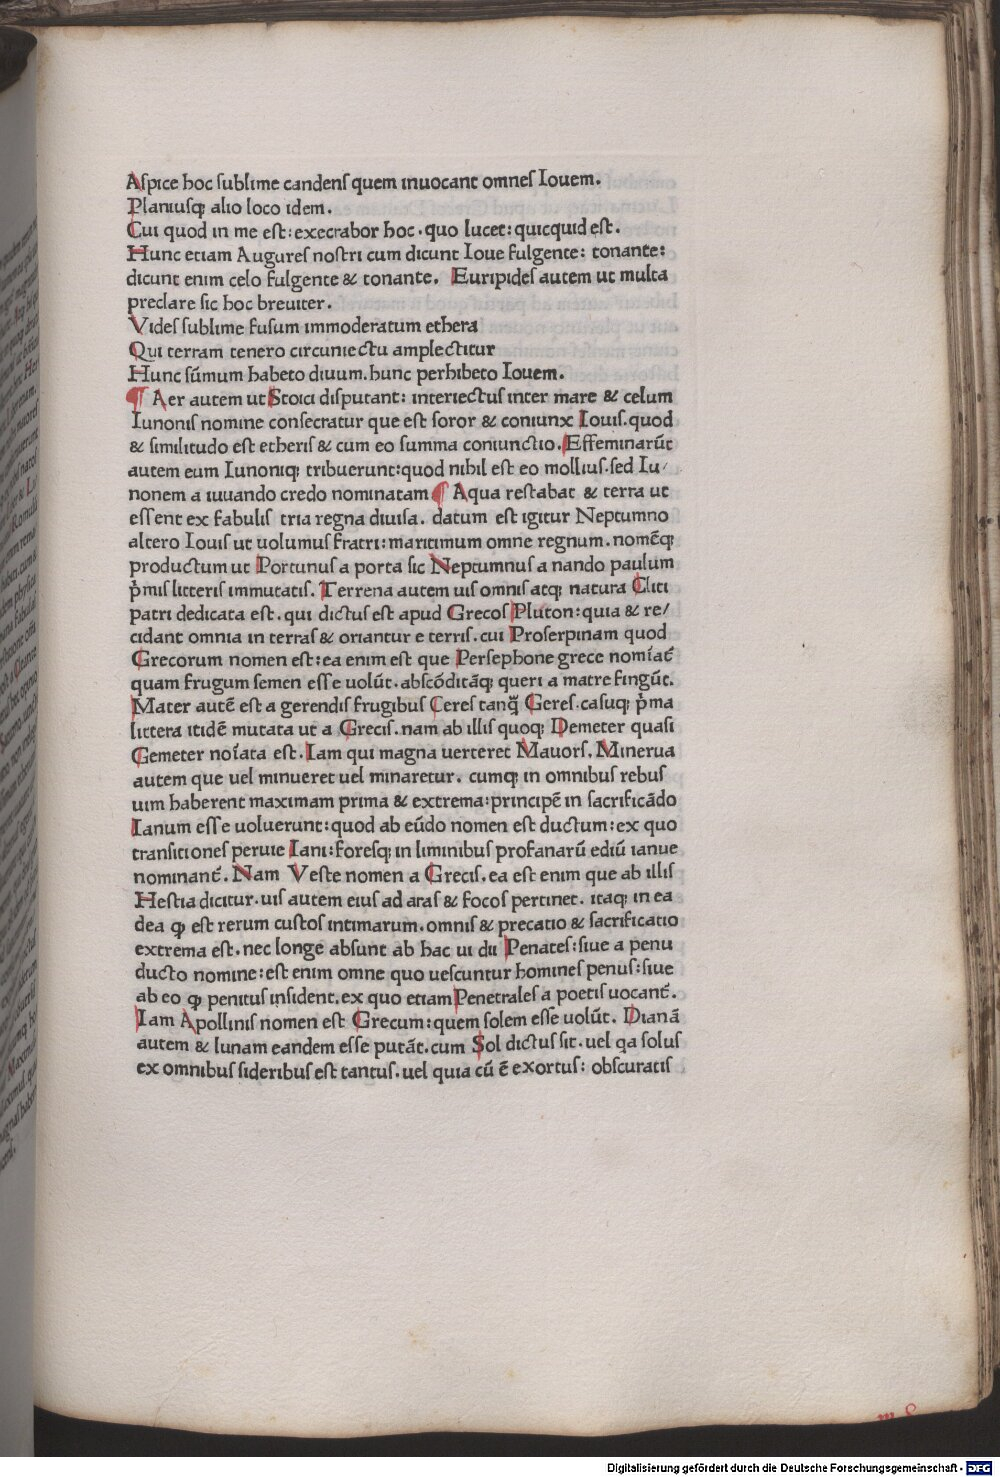 Aspice hoc sublime candens quem inuocant omnes Iouem.
Planiusqꝫ alio loco idem.
Cui quod in me est: execrabor hoc. quo lucet: quicquid est.
Hunc etiam Augures nostri cum dicunt Ioue fulgente: tonante:
dicunt enim celo fulgente & tonante. Euripides autem ut multa
preclare sic hoc breuiter.
Vides sublime fusum immoderatum ethera
Qui terram tenero circuniectu amplectitur
Hunc sūmum habeto diuum. hunc perhibeto Iouem.
¶ Aer autem ut Stoici disputant: interiectus inter mare & celum
Iunonis nomine consecratur que est soror & coniunx Iouis. quod
& similitudo est etheris & cum eo summa coniunctio. Effeminarūt
autem eum Iunoniqꝫ tribuerunt: quod nihil est eo mollius. sed Iu/
nonem a iuuando credo nominatam ¶ Aqua restabat & terra ut
essent ex fabulis tria regna diuisa. datum est igitur Neptumno
altero Iouis ut uolumus fratri: maritimum omne regnum. nomēqꝫ
productum ut Portunus a porta sic Neptumnus a nando paulum
p̄mis litteris immutatis. Terrena autem uis omnis atqꝫ natura Cliti
patri dedicata est. qui dictus est apud Grecos Pluton: quia & re/
cidant omnia in terras & oriantur e terris. cui Proserpinam quod
Grecorum nomen est: ea enim est que Persephone grece nomīat̄
quam frugum semen esse uolūt. abscōditāqꝫ queri a matre fingūt.
Mater autē est a gerendis frugibus Ceres tanq̄ Geres. casuqꝫ p̄ma
littera itidē mutata ut a Grecis. nam ab illis quoqꝫ Demeter quasi
Gemeter noīata est. Iam qui magna uerteret Mauors. Minerua
autem que uel minueret uel minaretur. cumqꝫ in omnibus rebus
uim haberent maximam prima & extrema: principē in sacrificādo
Ianum esse uoluerunt: quod ab eūdo nomen est ductum: ex quo
transitiones peruie Iani: foresqꝫ in liminibus profanarū ediū ianue
nominant̄. Nam Veste nomen a Grecis. ea est enim que ab illis
Hestia dicitur. uis autem eius ad aras & focos pertinet. itaqꝫ in ea
dea ꝙ est rerum custos intimarum. omnis & precatio & sacrificatio
extrema est. nec longe absunt ab hac ui dii Penates: siue a penu
ducto nomine: est enim omne quo uescuntur homines penus: siue
ab eo ꝙ penitus insident. ex quo etiam Penetrales a poetis uocant̄.
Iam Apollinis nomen est Grecum: quem solem esse uolūt. Dianā
autem & lunam eandem esse putāt. cum Sol dictus sit. uel qa solus
ex omnibus sideribus est tantus. uel quia cū ē exortus: obscuratis
Digitalisierung gefördert durch die Deutsche Forschungsgemeinschaft - DFG